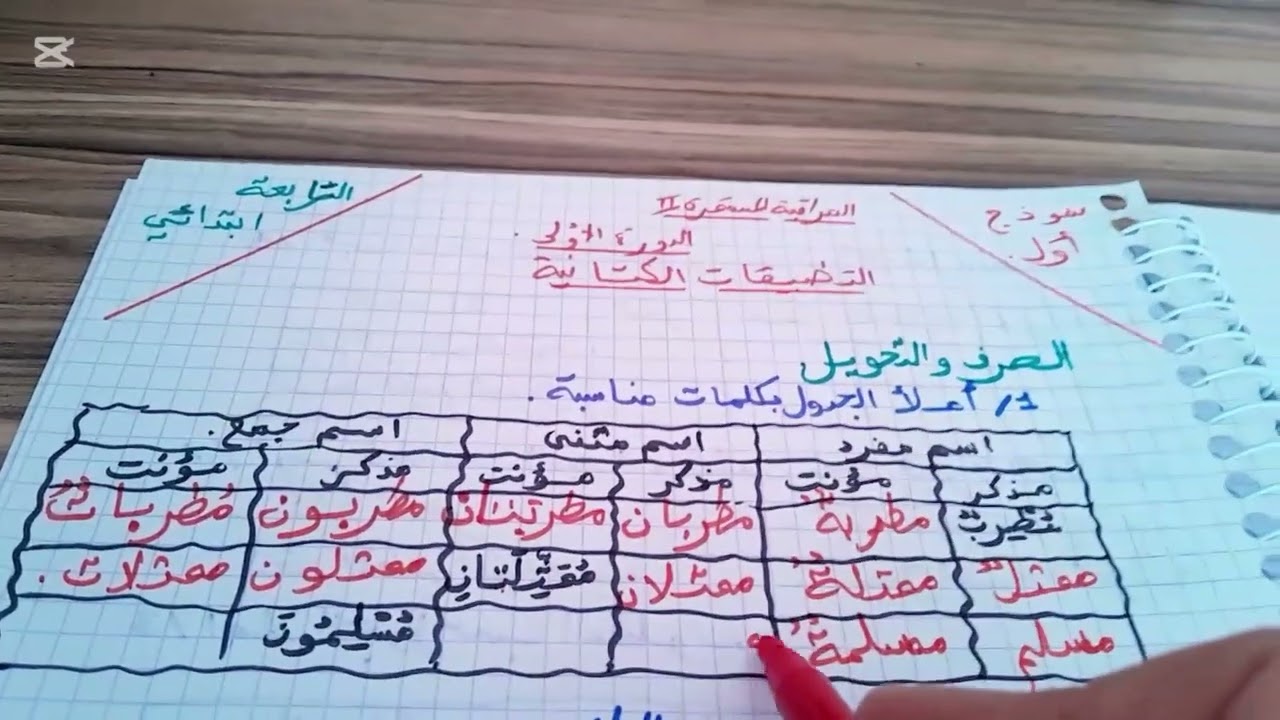 نموذج
أول.
المراقبة المستمرة II
الدورة الأولى
التطبيقات الكتابية
الرابعة
ابتدائي
الصرف والتحويل
1/ أملأ الجدول بكلمات مناسبة.
اسم مفرد اسم مثنى اسم جمع.
مذكر مؤنث مذكر مؤنث مذكر مؤنث
مُطْرِبٌ مطربةٌ مطربان مطربتان مطربون مُطرباتٌ
ممثلٌ ممثلةٌ ممثلان مُمَثِّلَتَانِ ممثلون ممثلات.
مسلم مسلمةٌ مُسْلِمُونَ